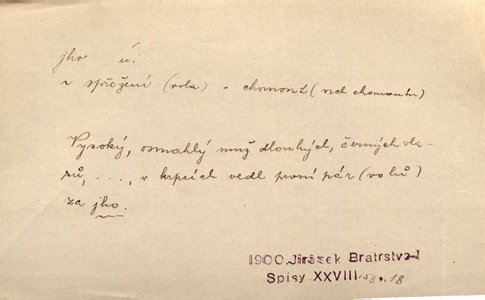 jho ú.
v spřežení (vola) - chomout (neb chomoutu)
Vysoký, osmahlý muž dlouhých, černých vla-
sů, ...., v krpcích vedl první pár (volů)
za jho.
1900. Jirásek Bratrstvo-I
Spisy XXVIII s. 18